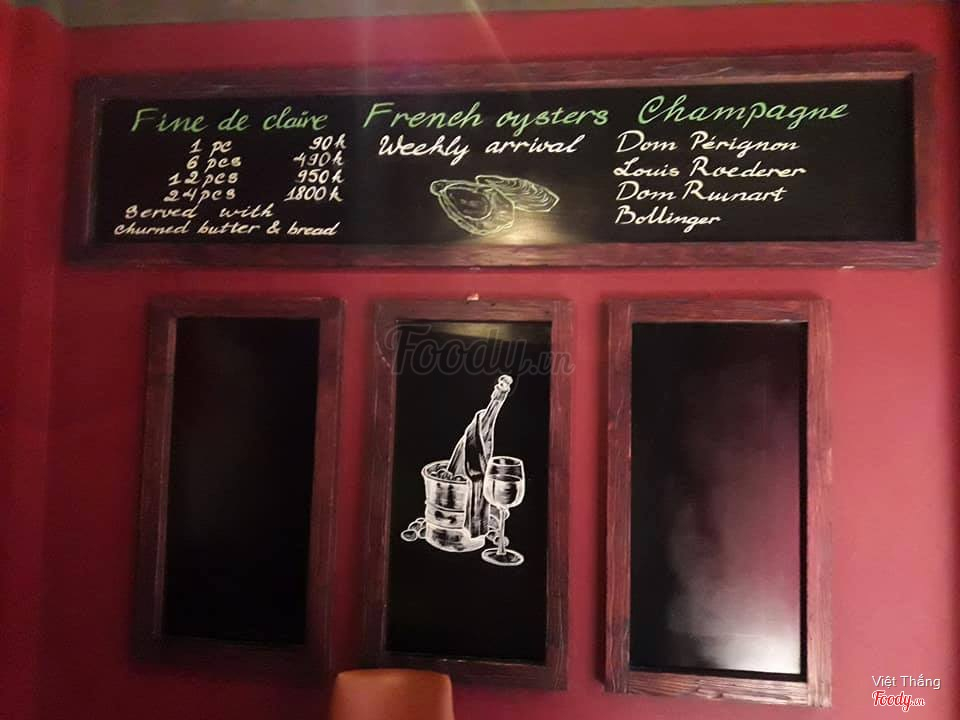 Fine de claire
1 pc 90k
6 pcs 490k
12 pcs 950k
24 pcs 1800k
Served with
churned butter & bread
French oysters
Weekly arrival
Champagne
Dom Pérignon
Louis Roederer
Dom Ruinart
Bollinger
Foody.vn
Việt Thắng
Foody.vn